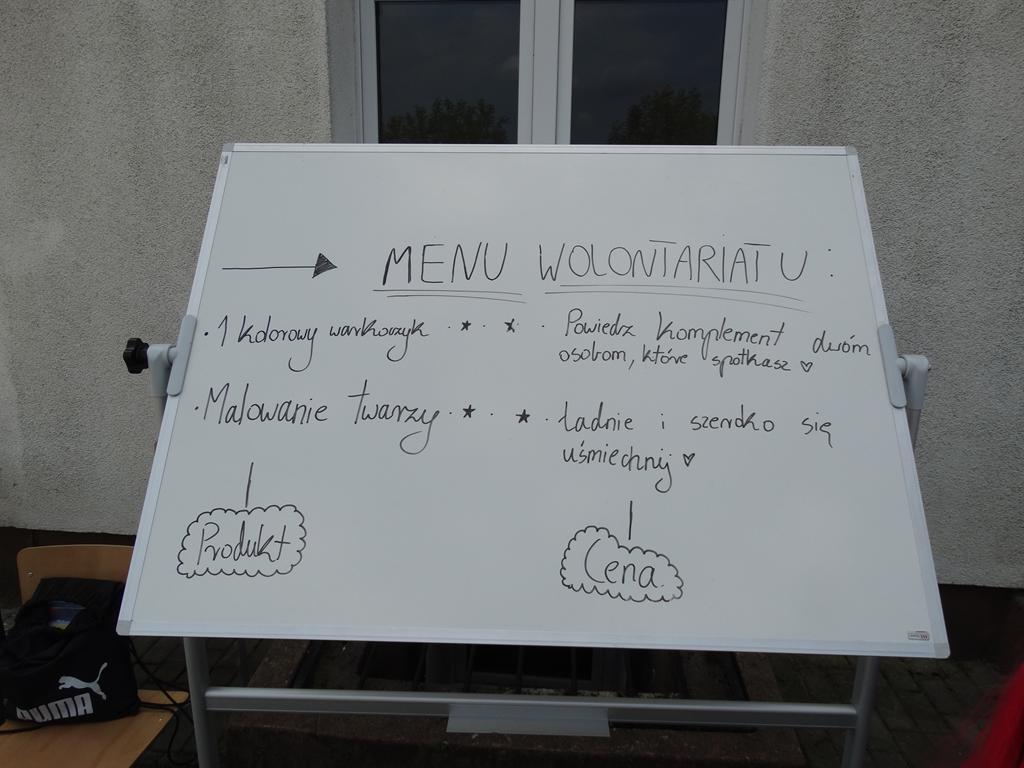 MENU WOLONTARIATU:
· 1 kolorowy warkoczyk · ★ · ★ · Powiedz komplement dwóm
osobom, które spotkasz ♡
· Malowanie twarzy · ★ · ★ · Ładnie i szeroko się
uśmiechnij ♡
Produkt
Cena
PUMA